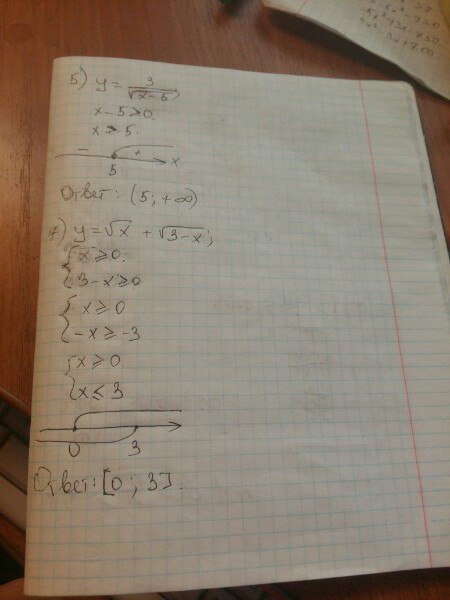 5) y = 3/√(x-5)
x-5>0.
x > 5.
- + x
5
Ответ: (5; +∞)
7) y=√x + √(3-x);
{x≥0.
3-x≥0
{x≥0
-x≥-3
{x≥0.
x≤3
0 3
Ответ: [0; 3].